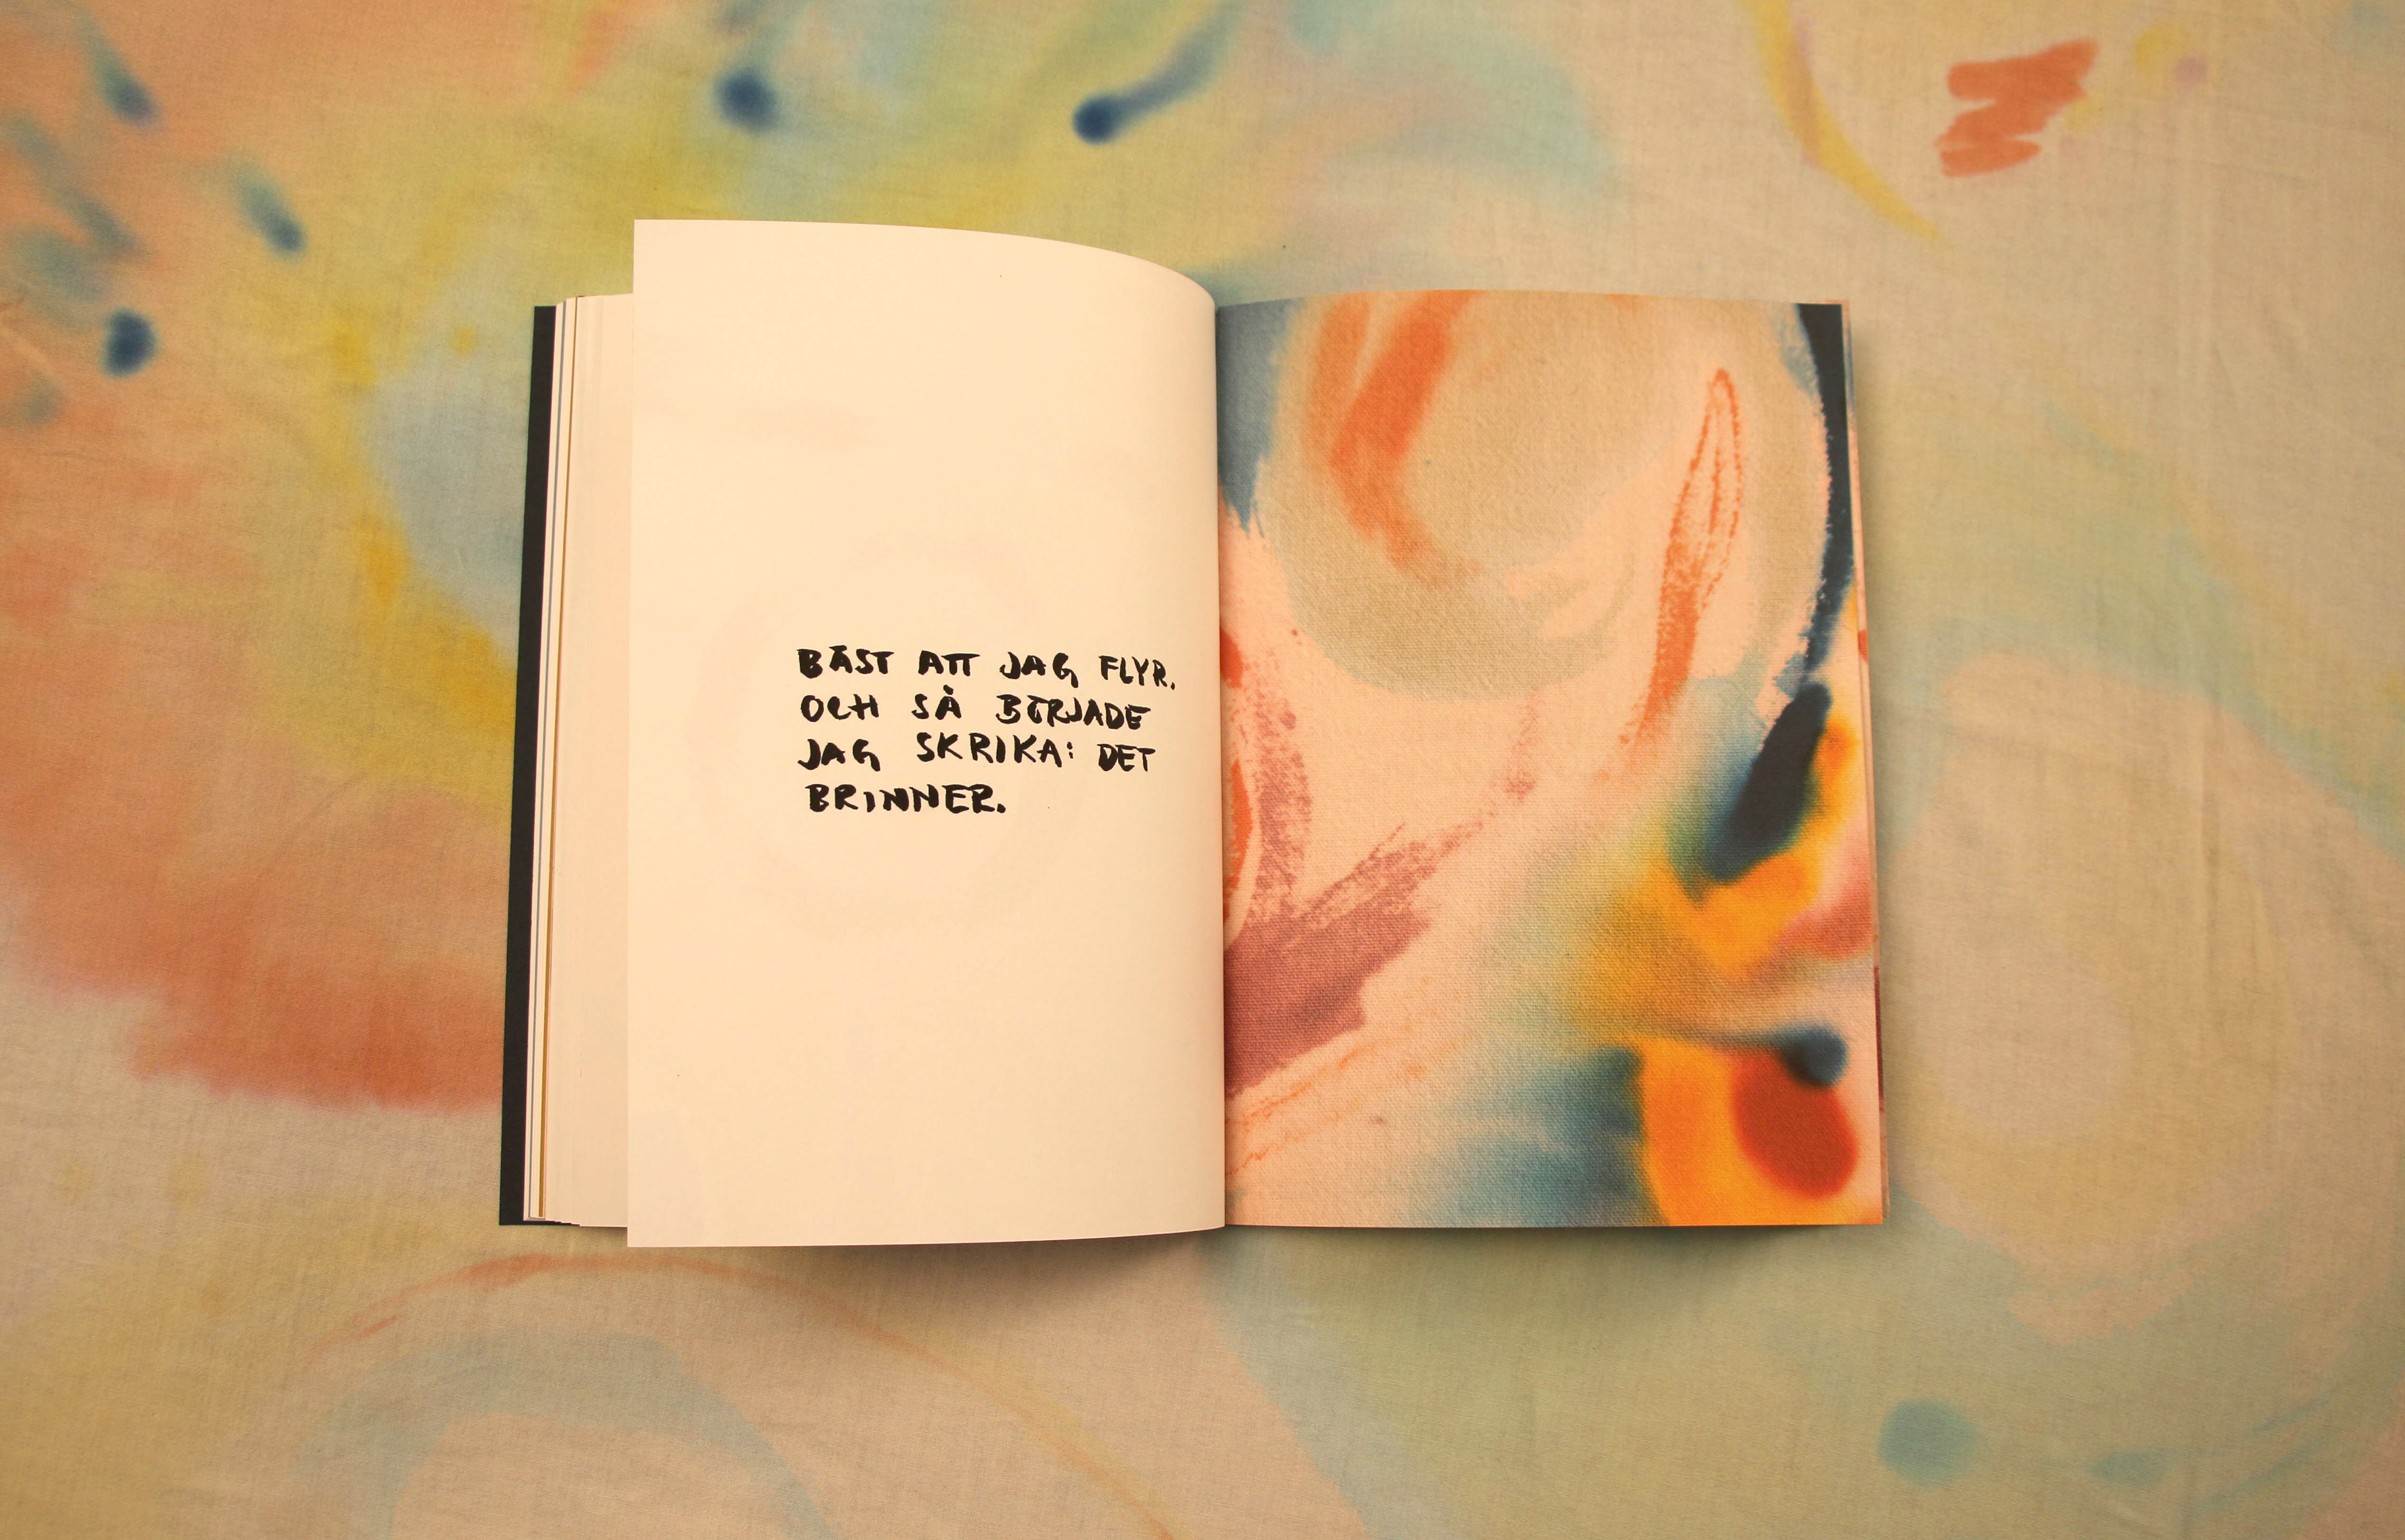 BÄST ATT JAG FLYR.
OCH SÅ BÖRJADE
JAG SKRIKA: DET
BRINNER.